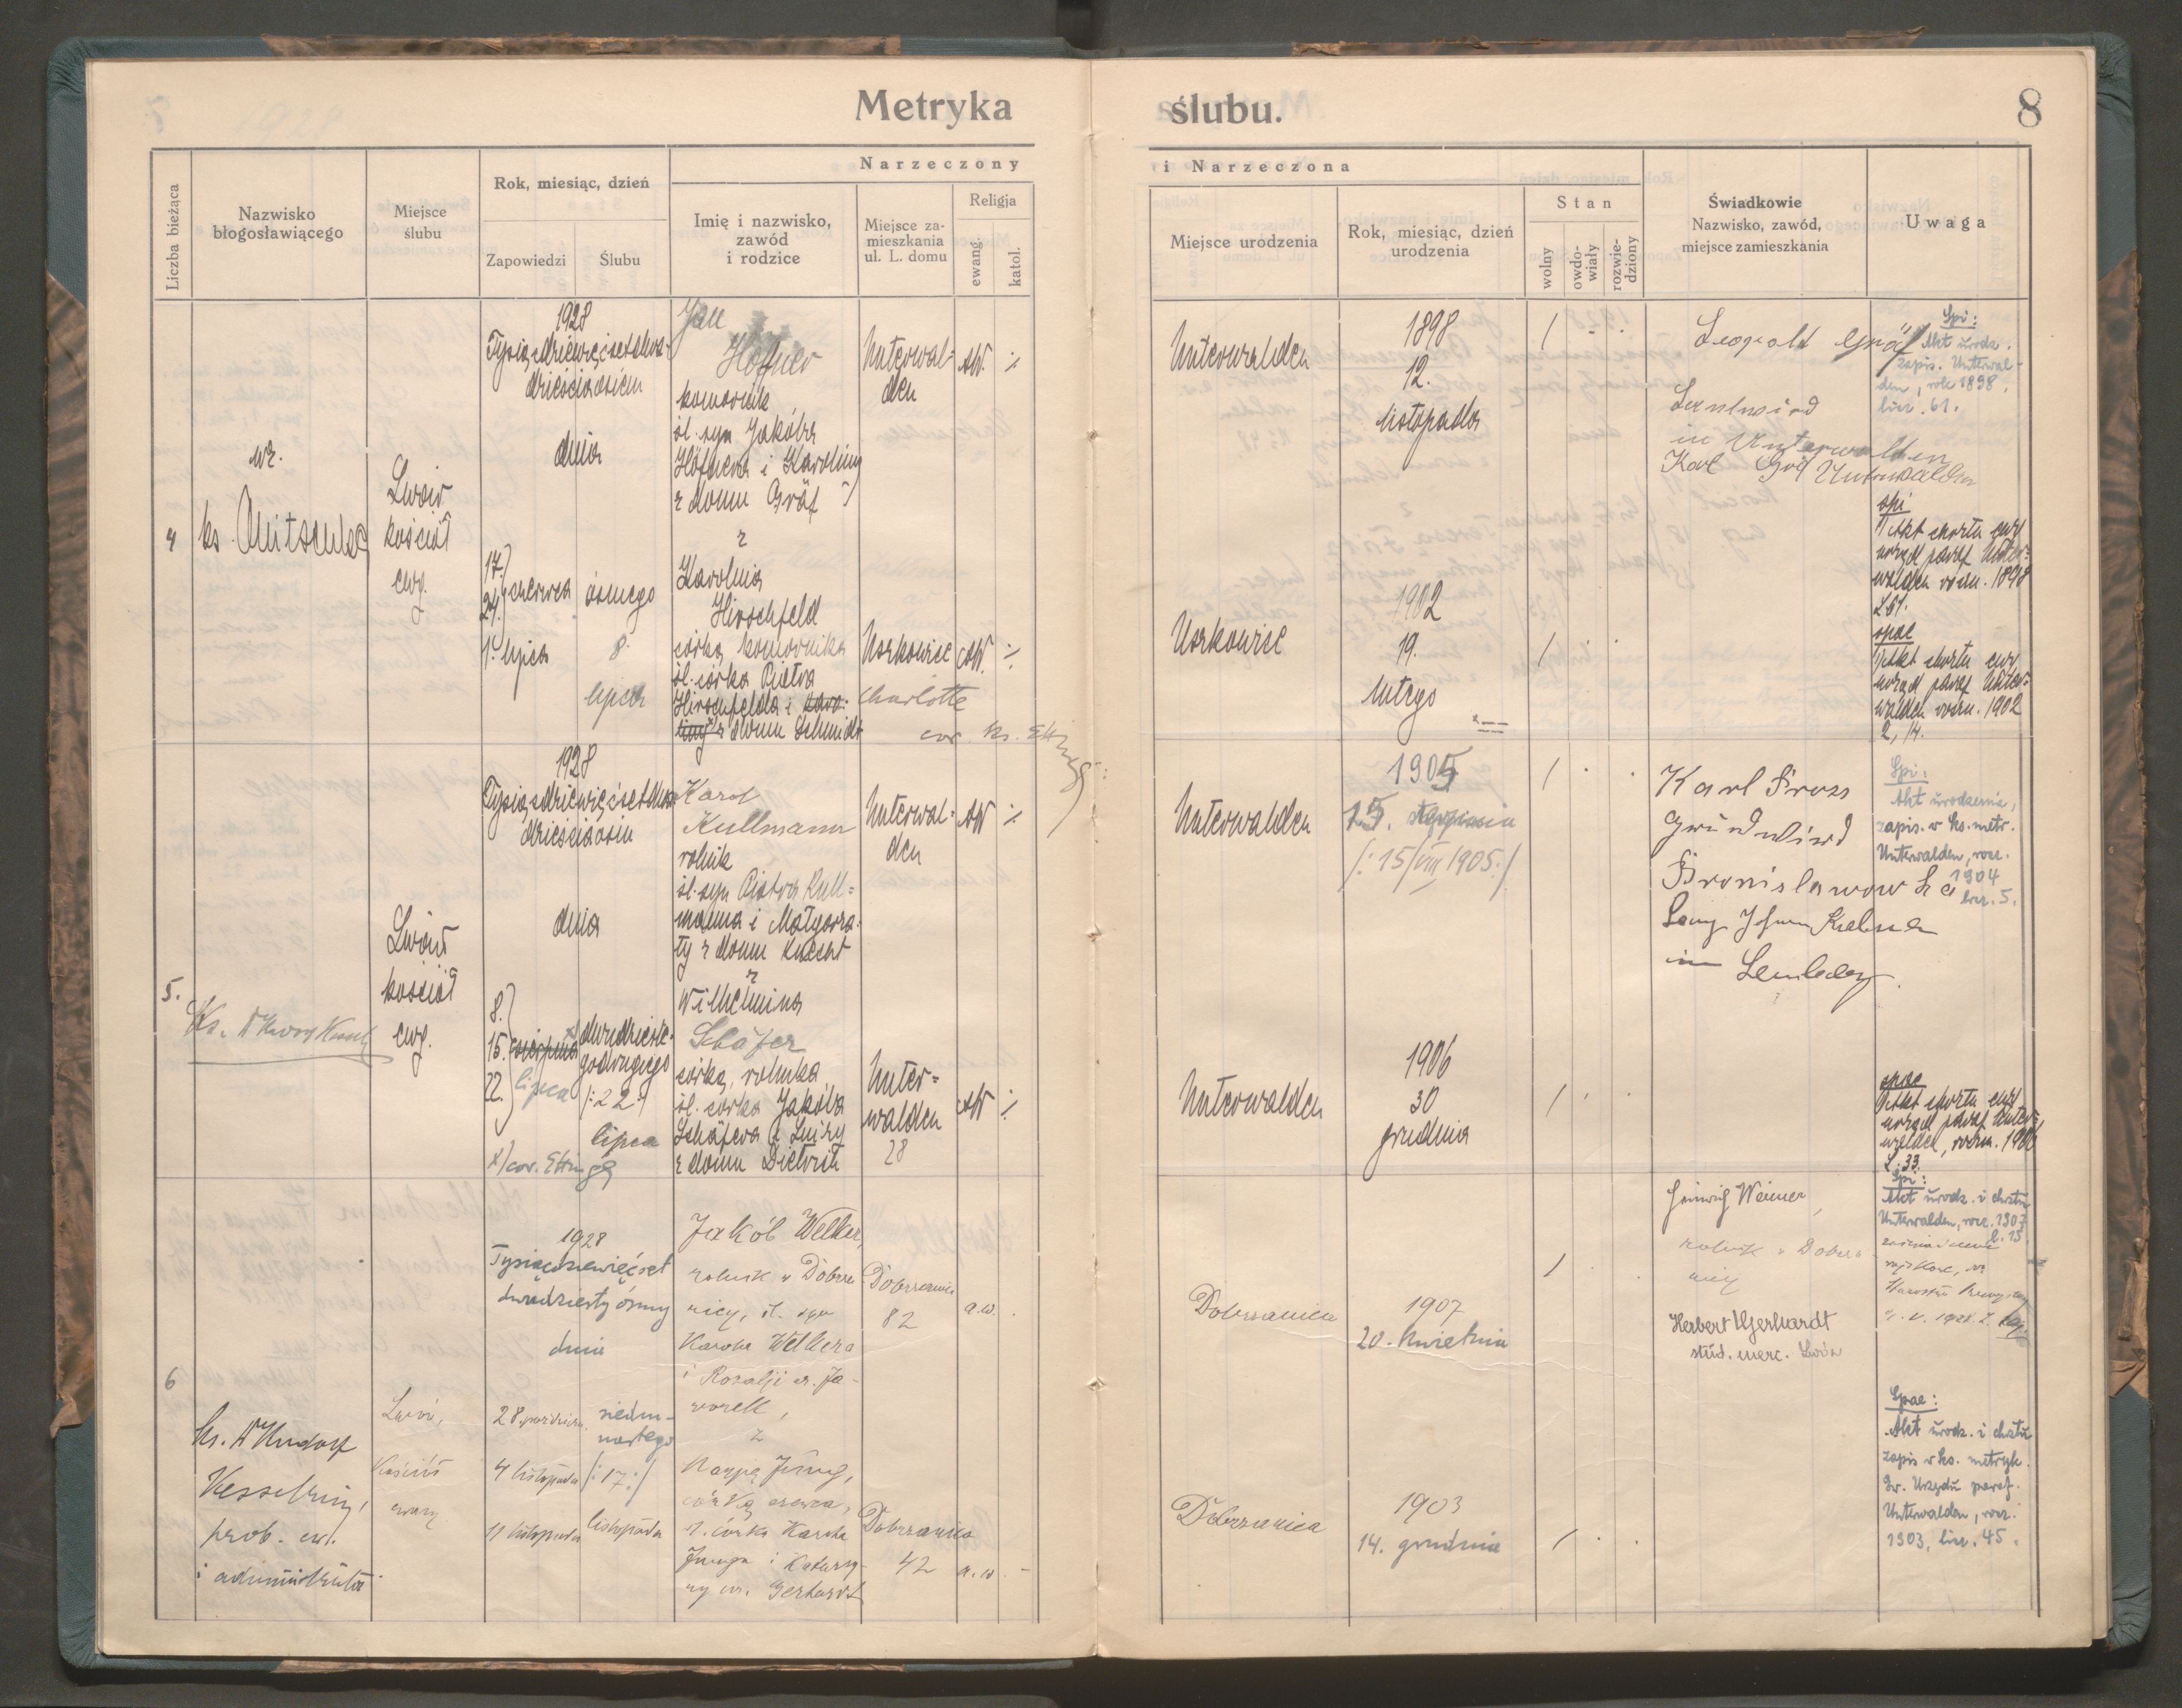 Metryka
ślubu.
8
Liczba bieżąca
Nazwisko
błogosławiącego
Miejsce
ślubu
Rok, miesiąc, dzień
Zapowiedzi
Ślubu
Narzeczony
Imię i nazwisko,
zawód
i rodzice
Miejsce za-
mieszkania
ul. L. domu
Religja
ewang.
katol.
i Narzeczona
Miejsce urodzenia
Rok, miesiąc, dzień
urodzenia
Stan
wolny
owdo-
wiały
rozwie-
dziony
Świadkowie
Nazwisko, zawód,
miejsce zamieszkania
Uwaga
4
wz.
ks.
Lwów
kościół
ewg.
1928
dnia
17.
24. czerwca
1. lipca
ósmego
8.
lipca
Höfner
komornik
śl. syn Jakóba
Höfnera i Karoliny
z domu Gräf
z
Karolina
Hirschfeld
córka komornika
śl. córka Piotra
Hirschfelda i
z domu Schmidt
Charlotte
Unterwal-
den
AW. ·/.
Uszkowice
AW. ·/.
Unterwalden
1898
12.
listopada
/ - .
Uszkowice
1902
19.
lutego
/ . .
Leopold Gräf
Landwird
in Unterwalden
Karl Gräf Unterwalden
Spi:
Akt urodz.
zapis. Unterwal-
den, rok 1898.
licz. 61.
spi
Akt chrztu ewg
urząd paraf Unter-
walden roczn. 1898
L 61.
spae
Akt chrztu ewg
urząd paraf Unter-
walden roczn. 1902
L, 14.
5.
Lwów
kościół
ewg.
1928
dnia
8.
15. sierpnia
22. lipca
dwudzieste-
godrugiego
/:22:/
lipca
x/ cor.
Karol
Kullmann
rolnik
śl. syn Piotra Kull=
manna i Małgorza-
ty z domu Knecht
z
Wilhelmina
Schäfer
córka, rolnika
śl. córka Jakóba
Schäfera i Luizy
z domu Dietrich
Unterwal-
den
AW ·/.
Unter=
walden
28
AW ·/.
Unterwalden
1905
15. sierpnia
/:15/VIII 1905:/
/ . .
Unterwalden
1906
30
grudnia
/ . .
Karl Pross
Grundwird
Johann
in Lemberg.
Spi:
Akt urodzenia,
zapis. w ks. metr.
Unterwalden, rocz.
1904
licz. 5.
spae
Akt chrztu ewg
urząd paraf Unter-
walden, roczn. 1906
L. 33.
6
ks. Dr Rudolf
Kesselring,
prob. ew.
i administrator
Lwów,
Kościół
ewang.
1928
Tysiącdziewięćset
dwudziesty ósmy
dnia
28. paździer.
4 listopada
11 listopada
siedm-
nastego
/:17:/
listopada
Jakób Welker,
rolnik w Dobrza
nicy, śl. syn
Karola Welkera
i Rozalji ur. Ja-
worek,
z
Jung,
córką szewca,
śl. córka Karola
Junga i Katarzy-
ny ur. Gerhardt
Dobrzanica
82
a.w. .
Dobrzanica
42
a.w. -
Dobrzanica
1907
20. kwietnia
/ . .
Dobrzanica
1903
14. grudnia
/ . .
Heinrich Weimer,
rolnik w Dobrza
nicy
Herbert Gerhardt
stud. merc. Lwów
Spi:
Akt urodz. i chrztu
Unterwalden, rocz. 1907
l. 13.
Spae:
Akt urodz. i chrztu
zapis w ks. metryk.
Gr. Urzędu paraf.
Unterwalden, rocz.
1903, licz. 45.